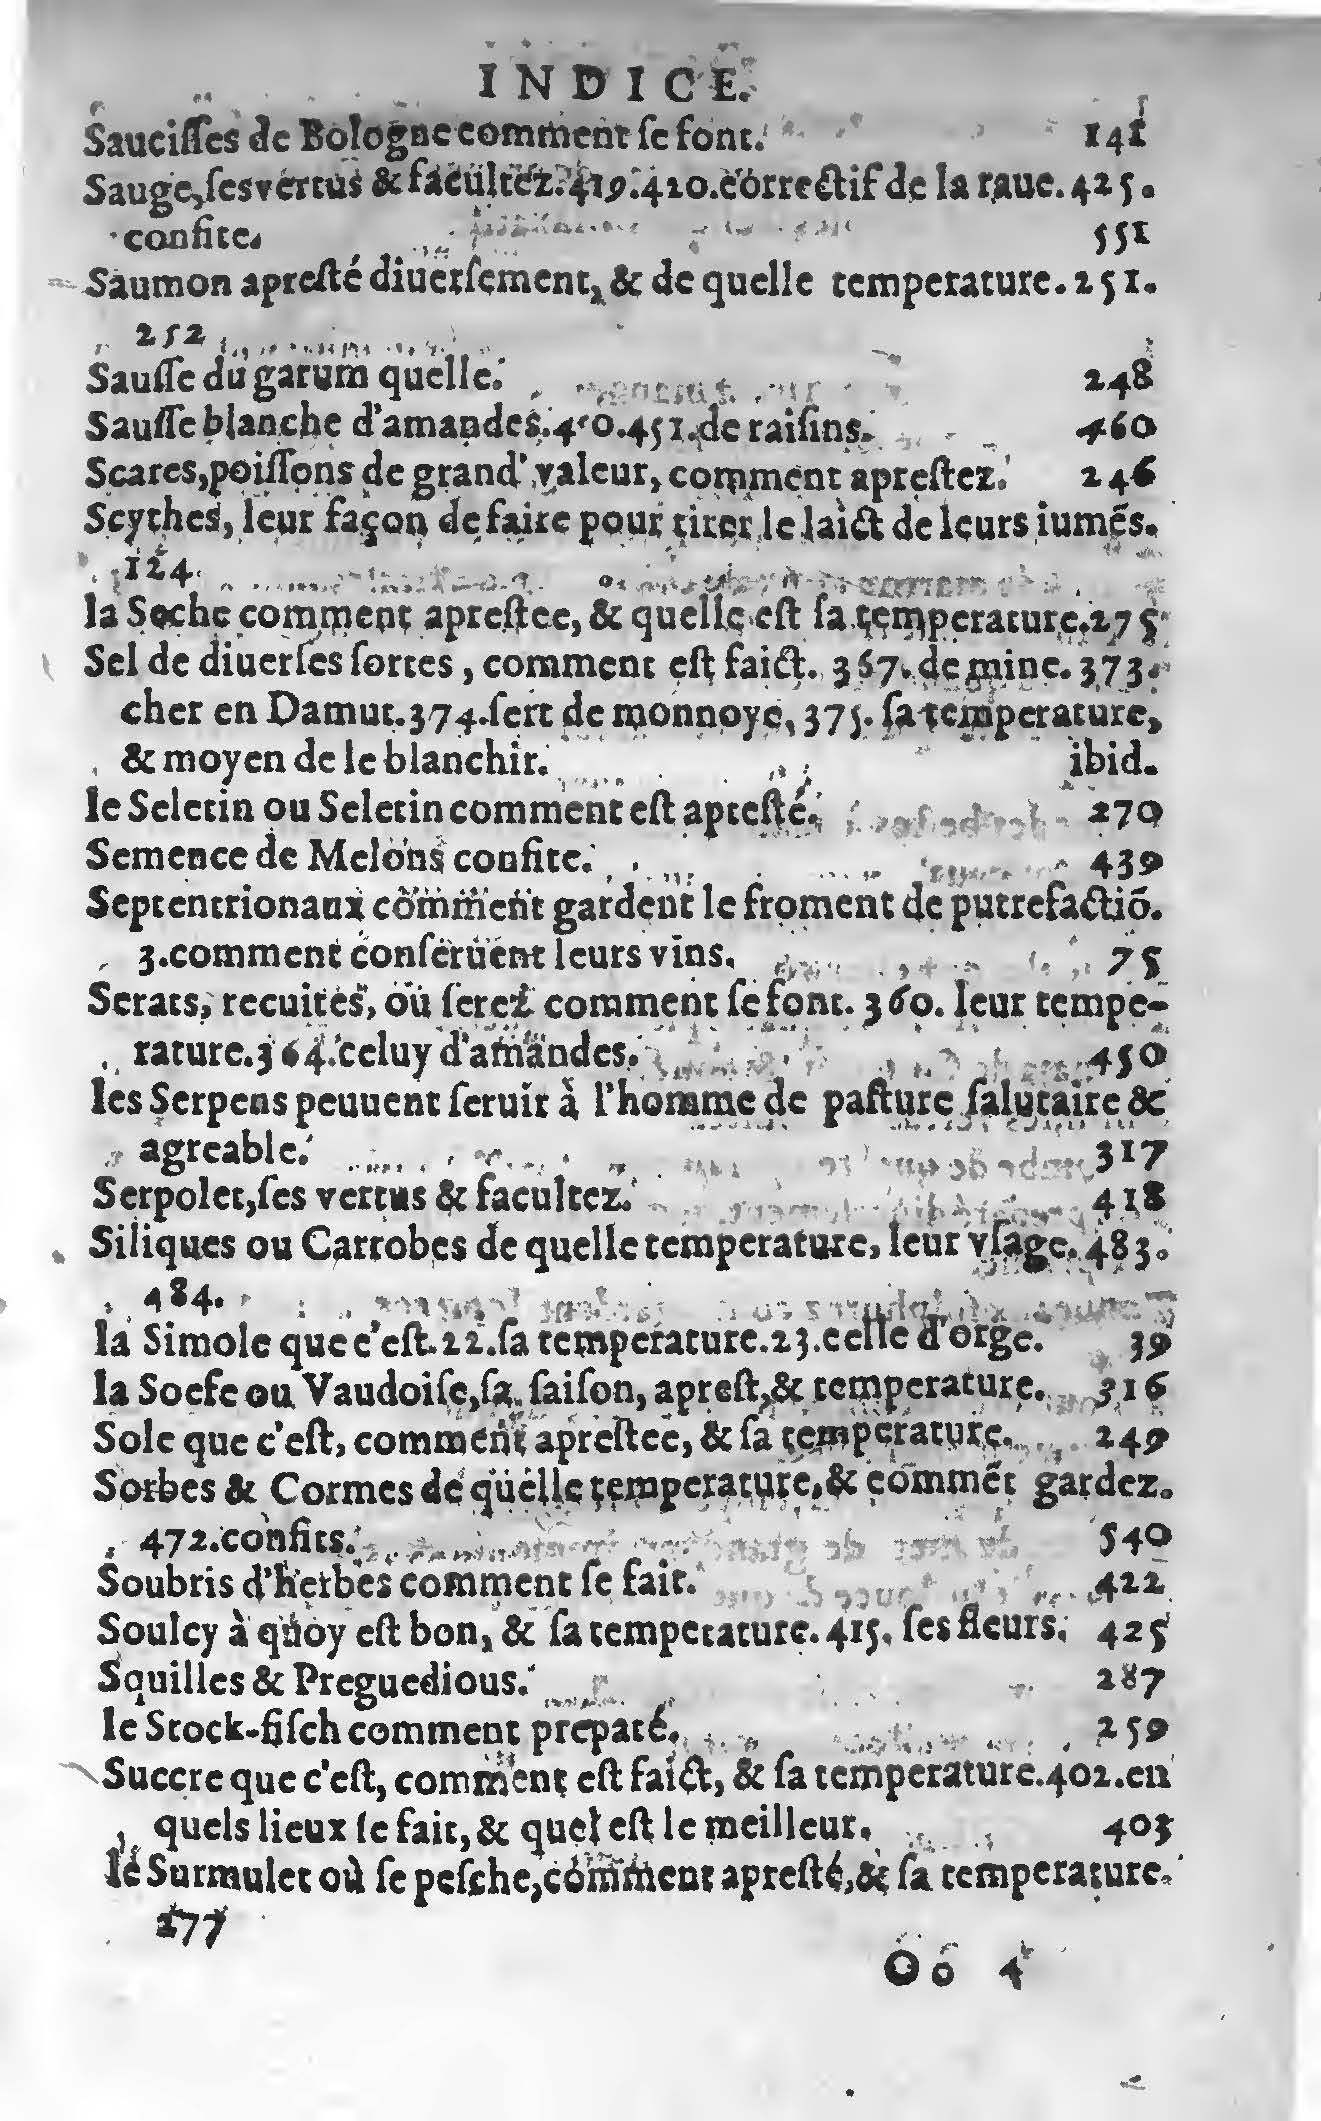 INDICE.
Sauciſſes de Bologne comment ſe font. 141
Sauge, ſes vertus & facultez. 419. 420. correctif de la raue. 425.
confite. 551
Saumon apreſté diuerſement, & de quelle temperature. 251.
252
Sauſſe du garum quelle. 248
Sauſſe blanche d'amandes. 450. 451. de raiſins. 460
Scares, poiſſons de grand' valeur, comment apreſtez. 246
Scythes, leur façon de faire pour tirer le laict de leurs iumẽs.
124.
la Seche comment apreſtee, & quelle eſt ſa temperature. 275
Sel de diuerſes ſortes, comment eſt faict. 367. de mine. 373.
cher en Damut. 374. ſert de monnoye, 375. ſa temperature,
& moyen de le blanchir. ibid.
le Seletin ou Seletin comment eſt apreſté. 270
Semence de Melons confite. 439
Septentrionaux comment gardent le froment de putrefactiõ.
3. comment conſeruent leurs vins. 75
Serats, recuites, ou ſerez comment ſe font. 360. leur tempe-
rature. 364. celuy d'amandes. 450
les Serpens peuuent ſeruir à l'homme de paſture ſalutaire &
agreable. 317
Serpolet, ſes vertus & facultez. 418
Siliques ou Carrobes de quelle temperature, leur vſage. 483.
484.
la Simole que c'eſt. 22. ſa temperature. 23. celle d'orge. 39
la Soefe ou Vaudoiſe, ſa ſaiſon, apreſt, & temperature. 316
Sole que c'eſt, comment apreſtee, & ſa temperature. 249
Sorbes & Cormes de quelle temperature, & commẽt gardez.
472. confits. 540
Soubris d'herbes comment ſe fait. 422
Soulcy à quoy eſt bon, & ſa temperature. 415. ſes fleurs. 425
Squilles & Preguedious. 287
le Stock-fiſch comment preparé. 259
Succre que c'eſt, comment eſt faict, & ſa temperature. 402. en
quels lieux ſe fait, & quel eſt le meilleur. 403
le Surmulet où ſe peſche, comment apreſté, & ſa temperature.
277
Oo 4